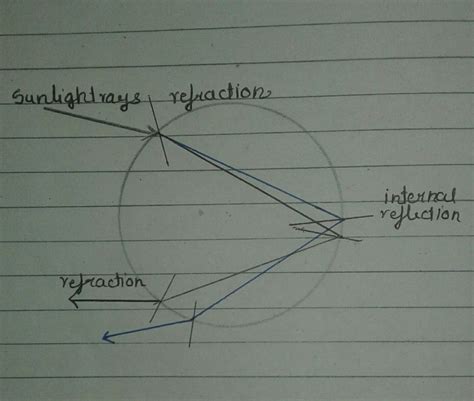 Sunlight rays refraction
internal
reflection
refraction